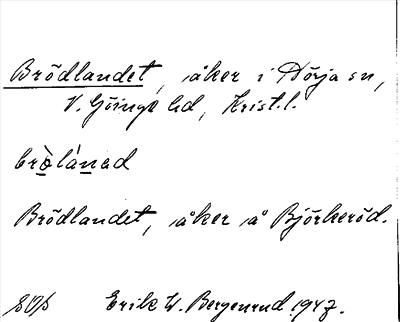 Brödlandet, åker i Nörja sn,
V. Göinge hd, Krist. l.
brò̱lá̱nad
Brödlandet, åker å Björkeröd.
Erik W. Bergenrud 1947.